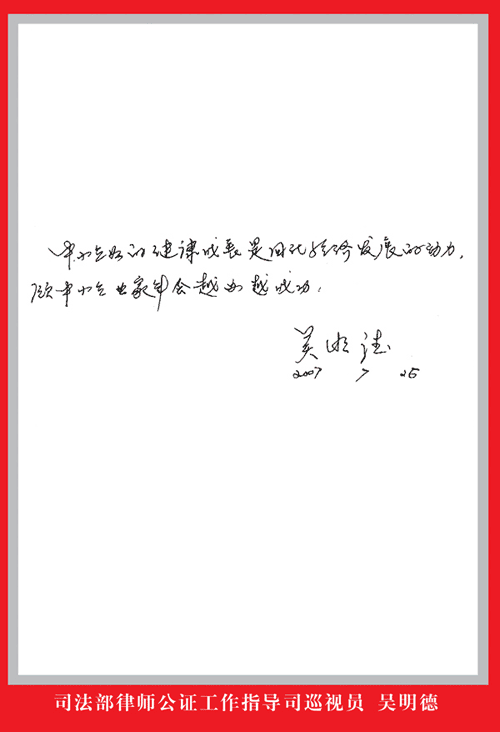 中小企业的健康成长是国民经济发展的动力，
愿中小企业家年会越办越成功。
吴明德
2007 7 25
司法部律师公证工作指导司巡视员 吴明德